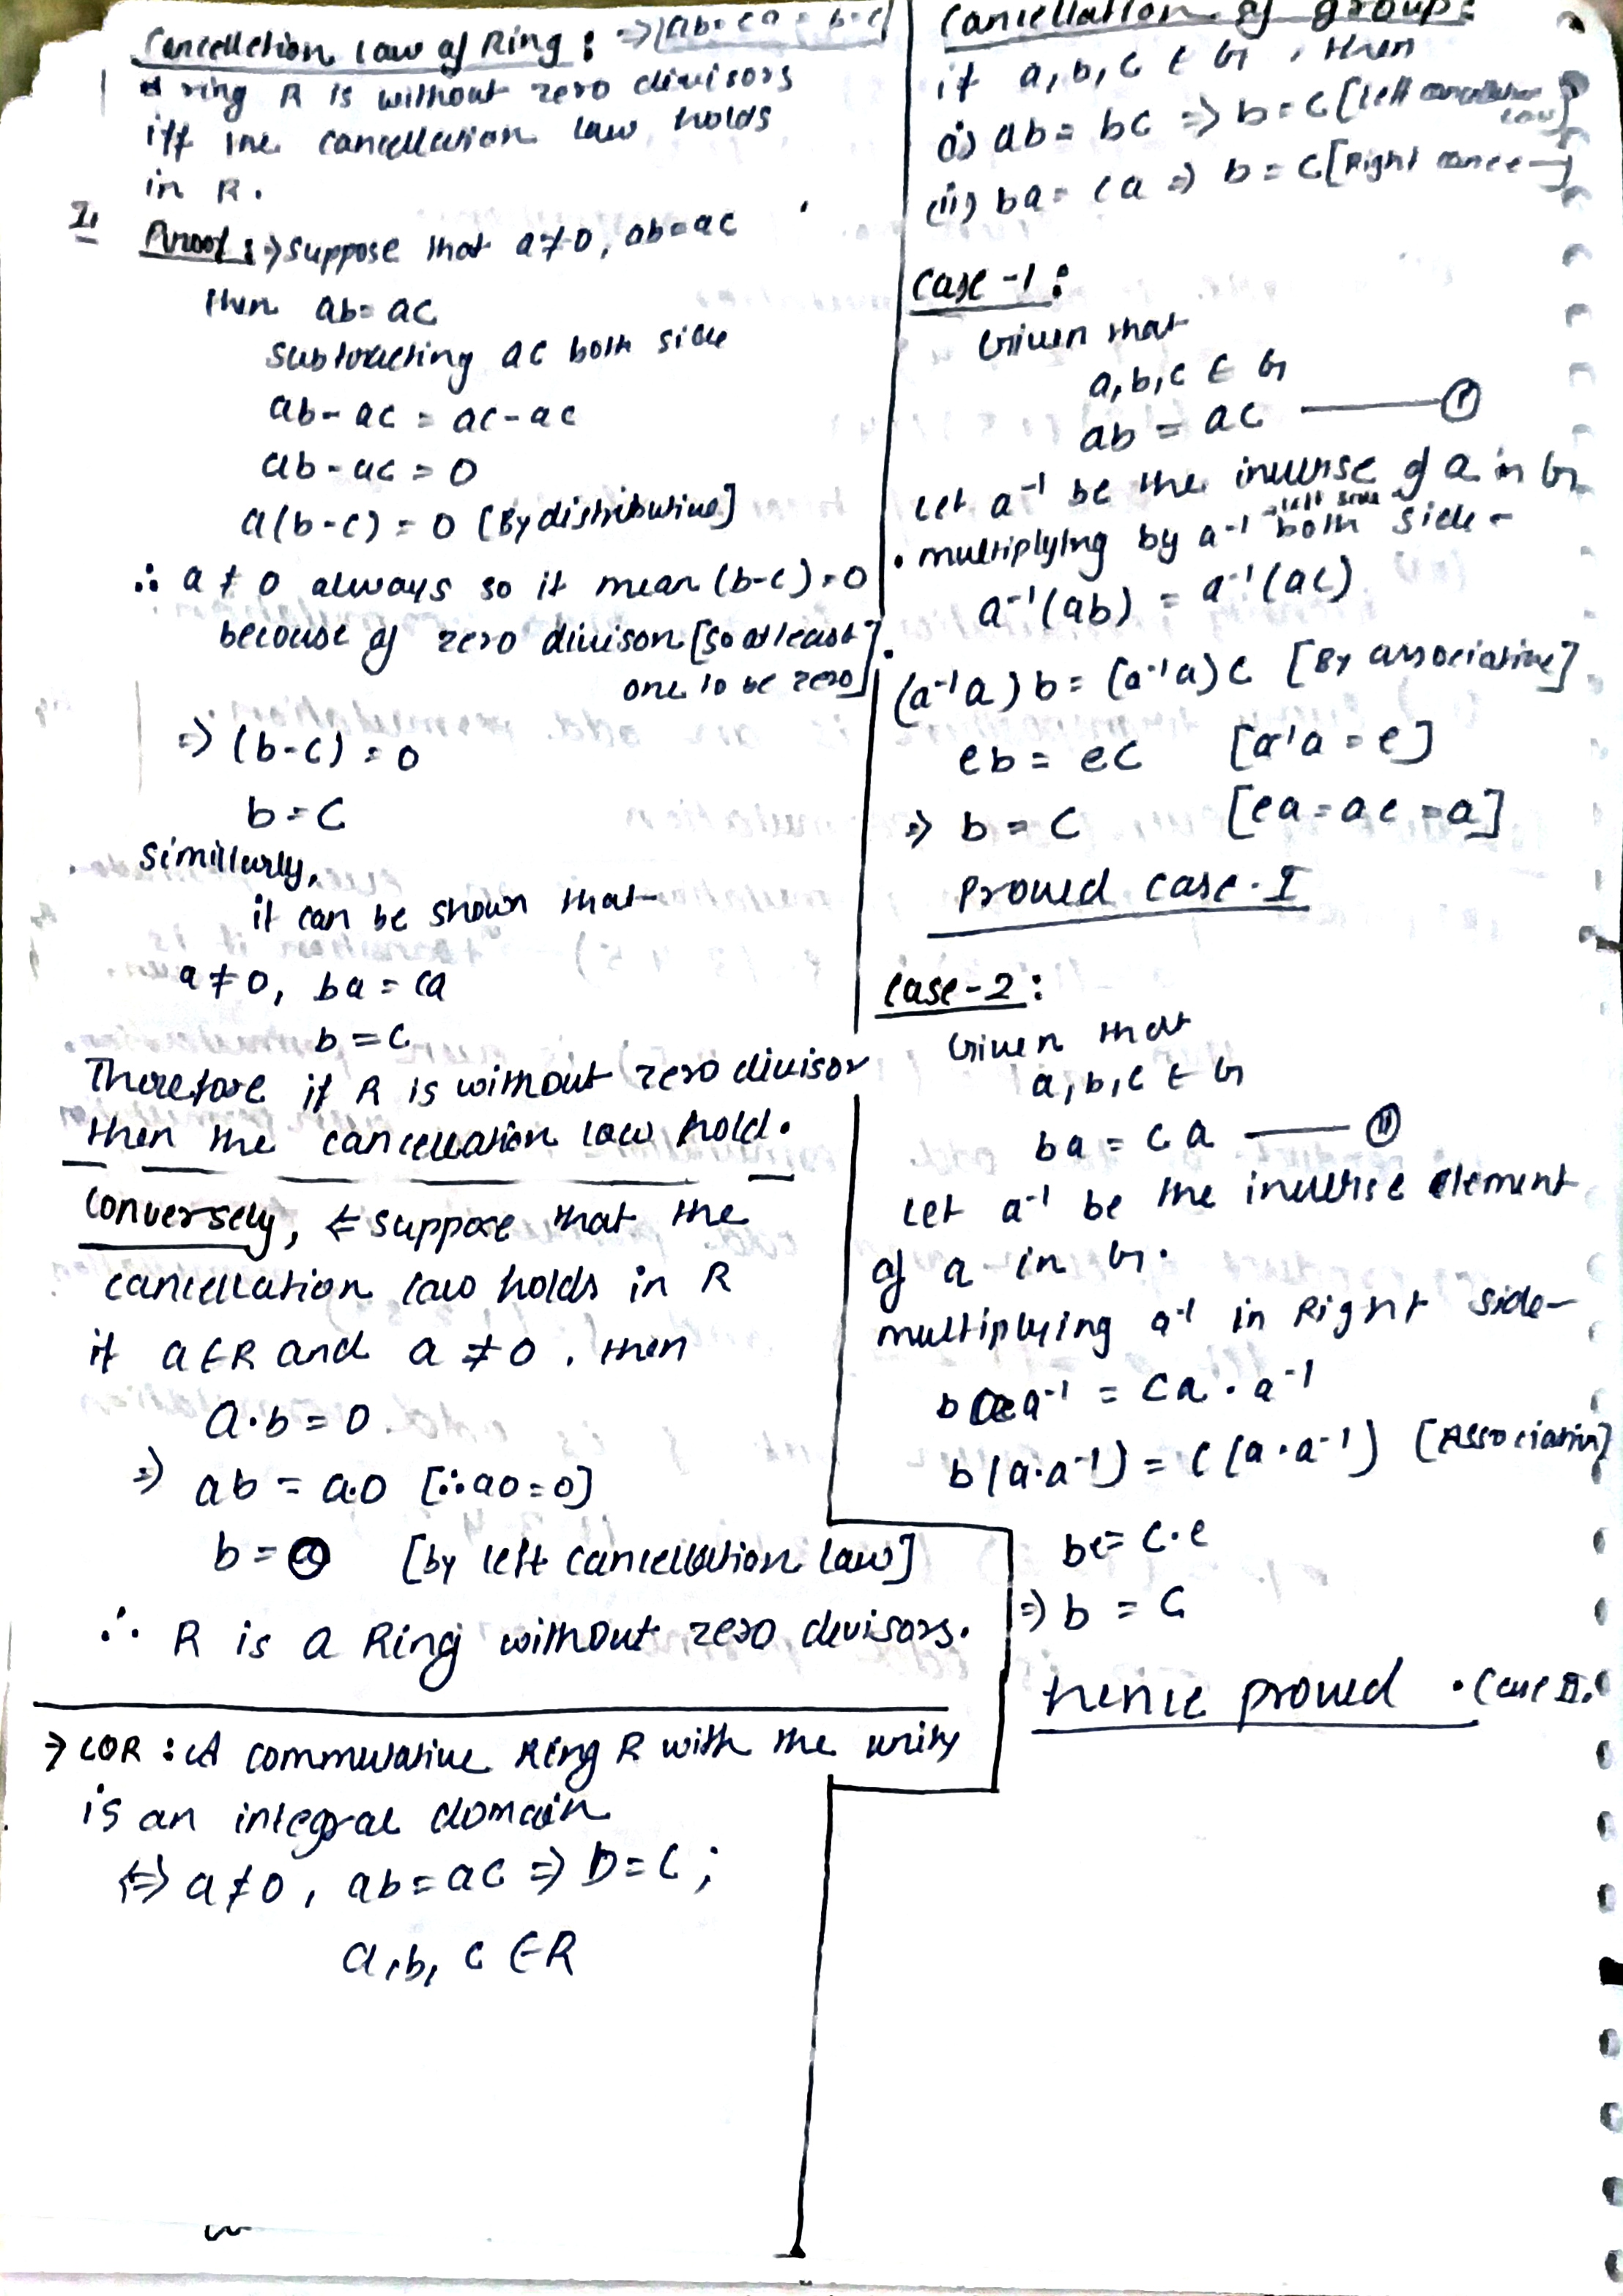 Cancelletion law of Ring : ⇒ [Ab = ca = b = c]
A ring R is without zero divisors
iff the cancellation law holds
in R.
I,
Proof : ⇒ Suppose that a ≠ 0, ab = ac
then ab = ac
Subtracting ac both side
ab - ac = ac - ac
ab - ac = 0
a(b-c) = 0 [By distributive]
∴ a ≠ 0 always so it mean (b-c) = 0
because of zero divison [So atleast
one to be zero]
⇒ (b-c) = 0
b = c
Similarly,
it can be shown that
a ≠ 0, ba = ca
b = c
Therefore if R is without zero divisor
then the cancellation law hold.
Conversely, ⇐ suppose that the
cancellation law holds in R
if a ∈ R and a ≠ 0, then
a.b = 0
⇒ ab = a.0 [∴ a0 = 0]
b = 0 [by left cancellation law]
∴ R is a Ring without zero devisors.
→ COR : A commutative Ring R with the unity
is an integral domain
⇔ a ≠ 0, ab = ac ⇒ b = c;
a, b, c ∈ R
Cancellation of group:
if a, b, c ∈ G, then
(i) ab = bc ⇒ b = c [left cancellation
law]
(ii) ba = ca ⇒ b = c [Right cance—]
Case-1 :
Given that
a, b, c ∈ G
ab = ac —— (I)
Let a⁻¹ be the inverse of a in G
left side
• multiplying by a⁻¹ both side -
a⁻¹(ab) = a⁻¹(ac)
(a⁻¹a)b = (a⁻¹a)c [By associative]
eb = ec [a⁻¹a = e]
⇒ b = c [ea = ae = a]
Proved case-I
Case-2 :
Given that
a, b, c ∈ G
ba = ca —— (II)
Let a⁻¹ be the inverse element
of a in G.
multiplying a⁻¹ in Right side-
b a a⁻¹ = ca . a⁻¹
b(a.a⁻¹) = c(a.a⁻¹) [Associative]
be = c.e
⇒ b = c
hence proved . Case II.